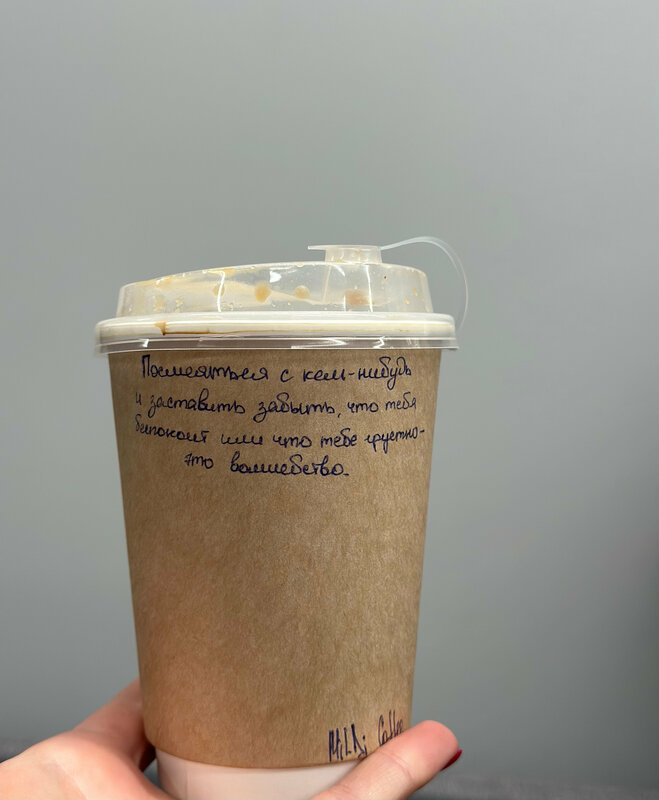 Посмеяться с кем-нибудь
и заставить забыть, что тебя
беспокоит или что тебе грустно-
это волшебство.
Coffee